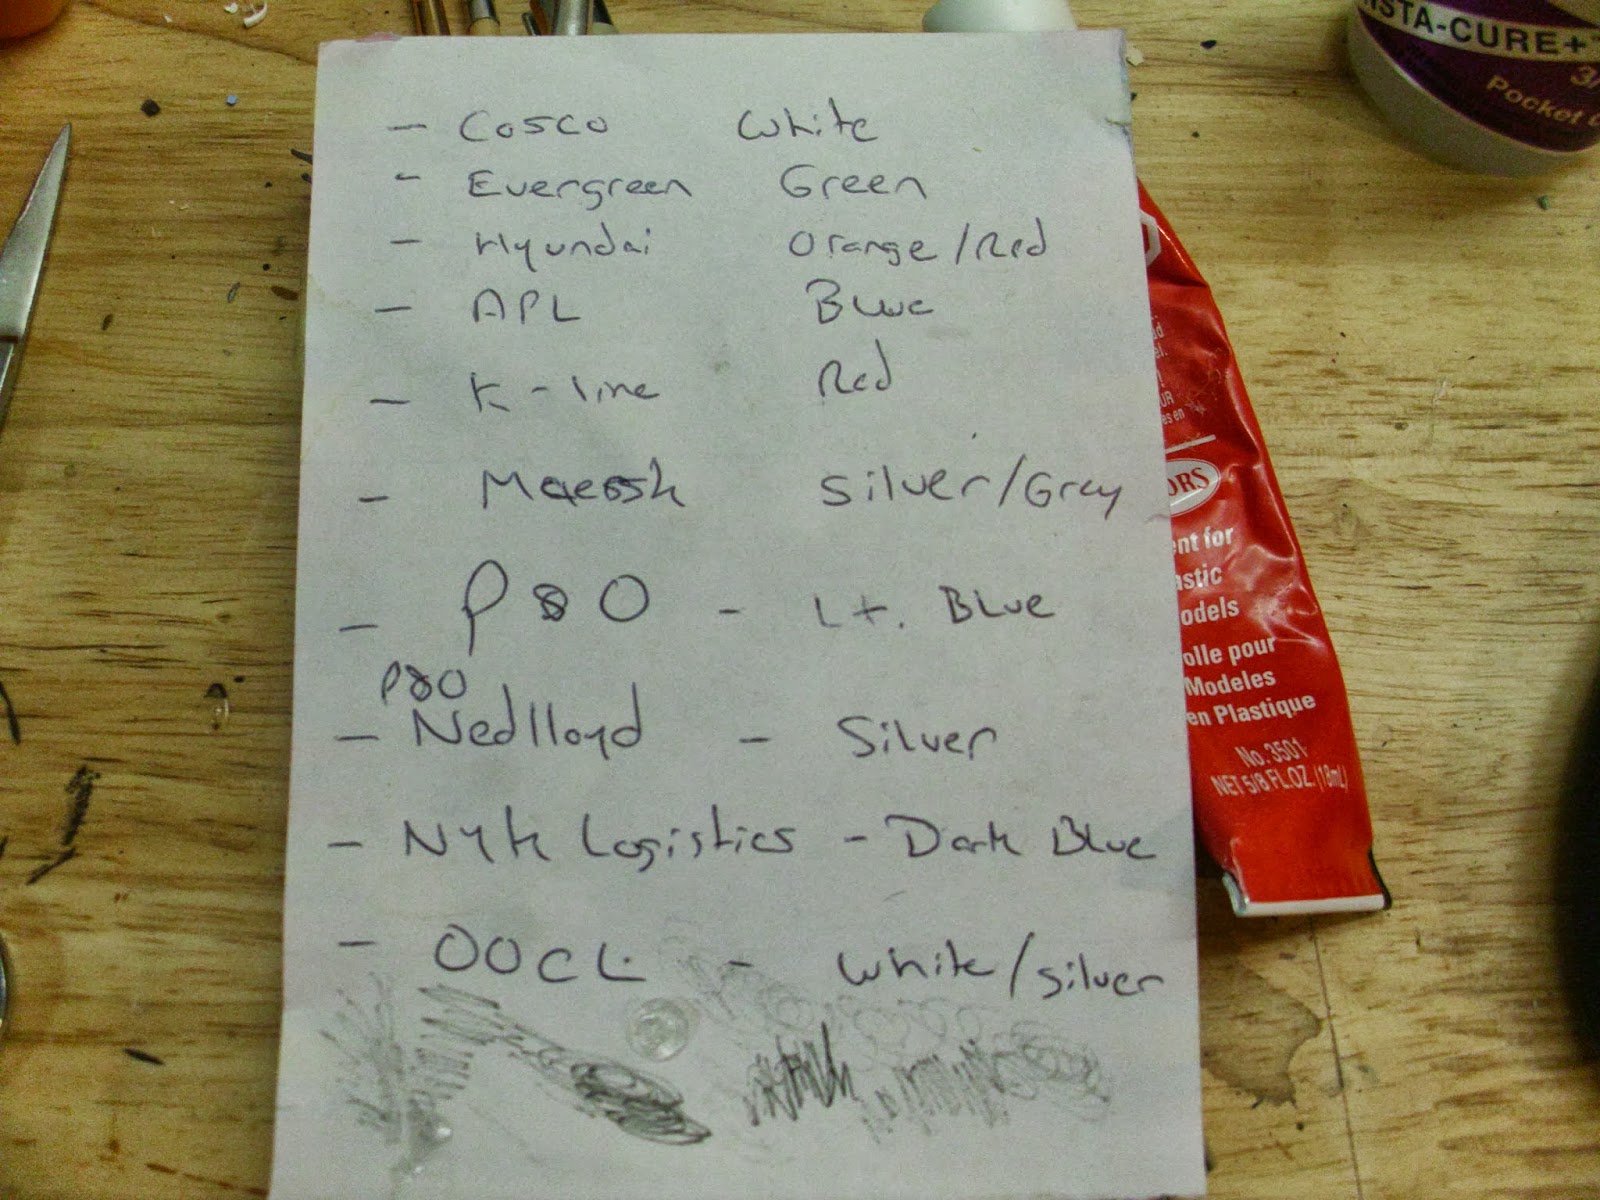 - Cosco White
- Evergreen Green
- Hyundai Orange/Red
- APL Blue
- K-line Red
- Maersk Silver/Grey
- P&O - Lt. Blue
P&O
- Nedlloyd - Silver
- NYK Logistics - Dark Blue
- OOCL - White/Silver
STA-CURE+™
Pocket
ORS
ent for
astic
odels
olle pour
Modeles
en Plastique
No. 3501
NET 5/8 FL.OZ. (18mL)